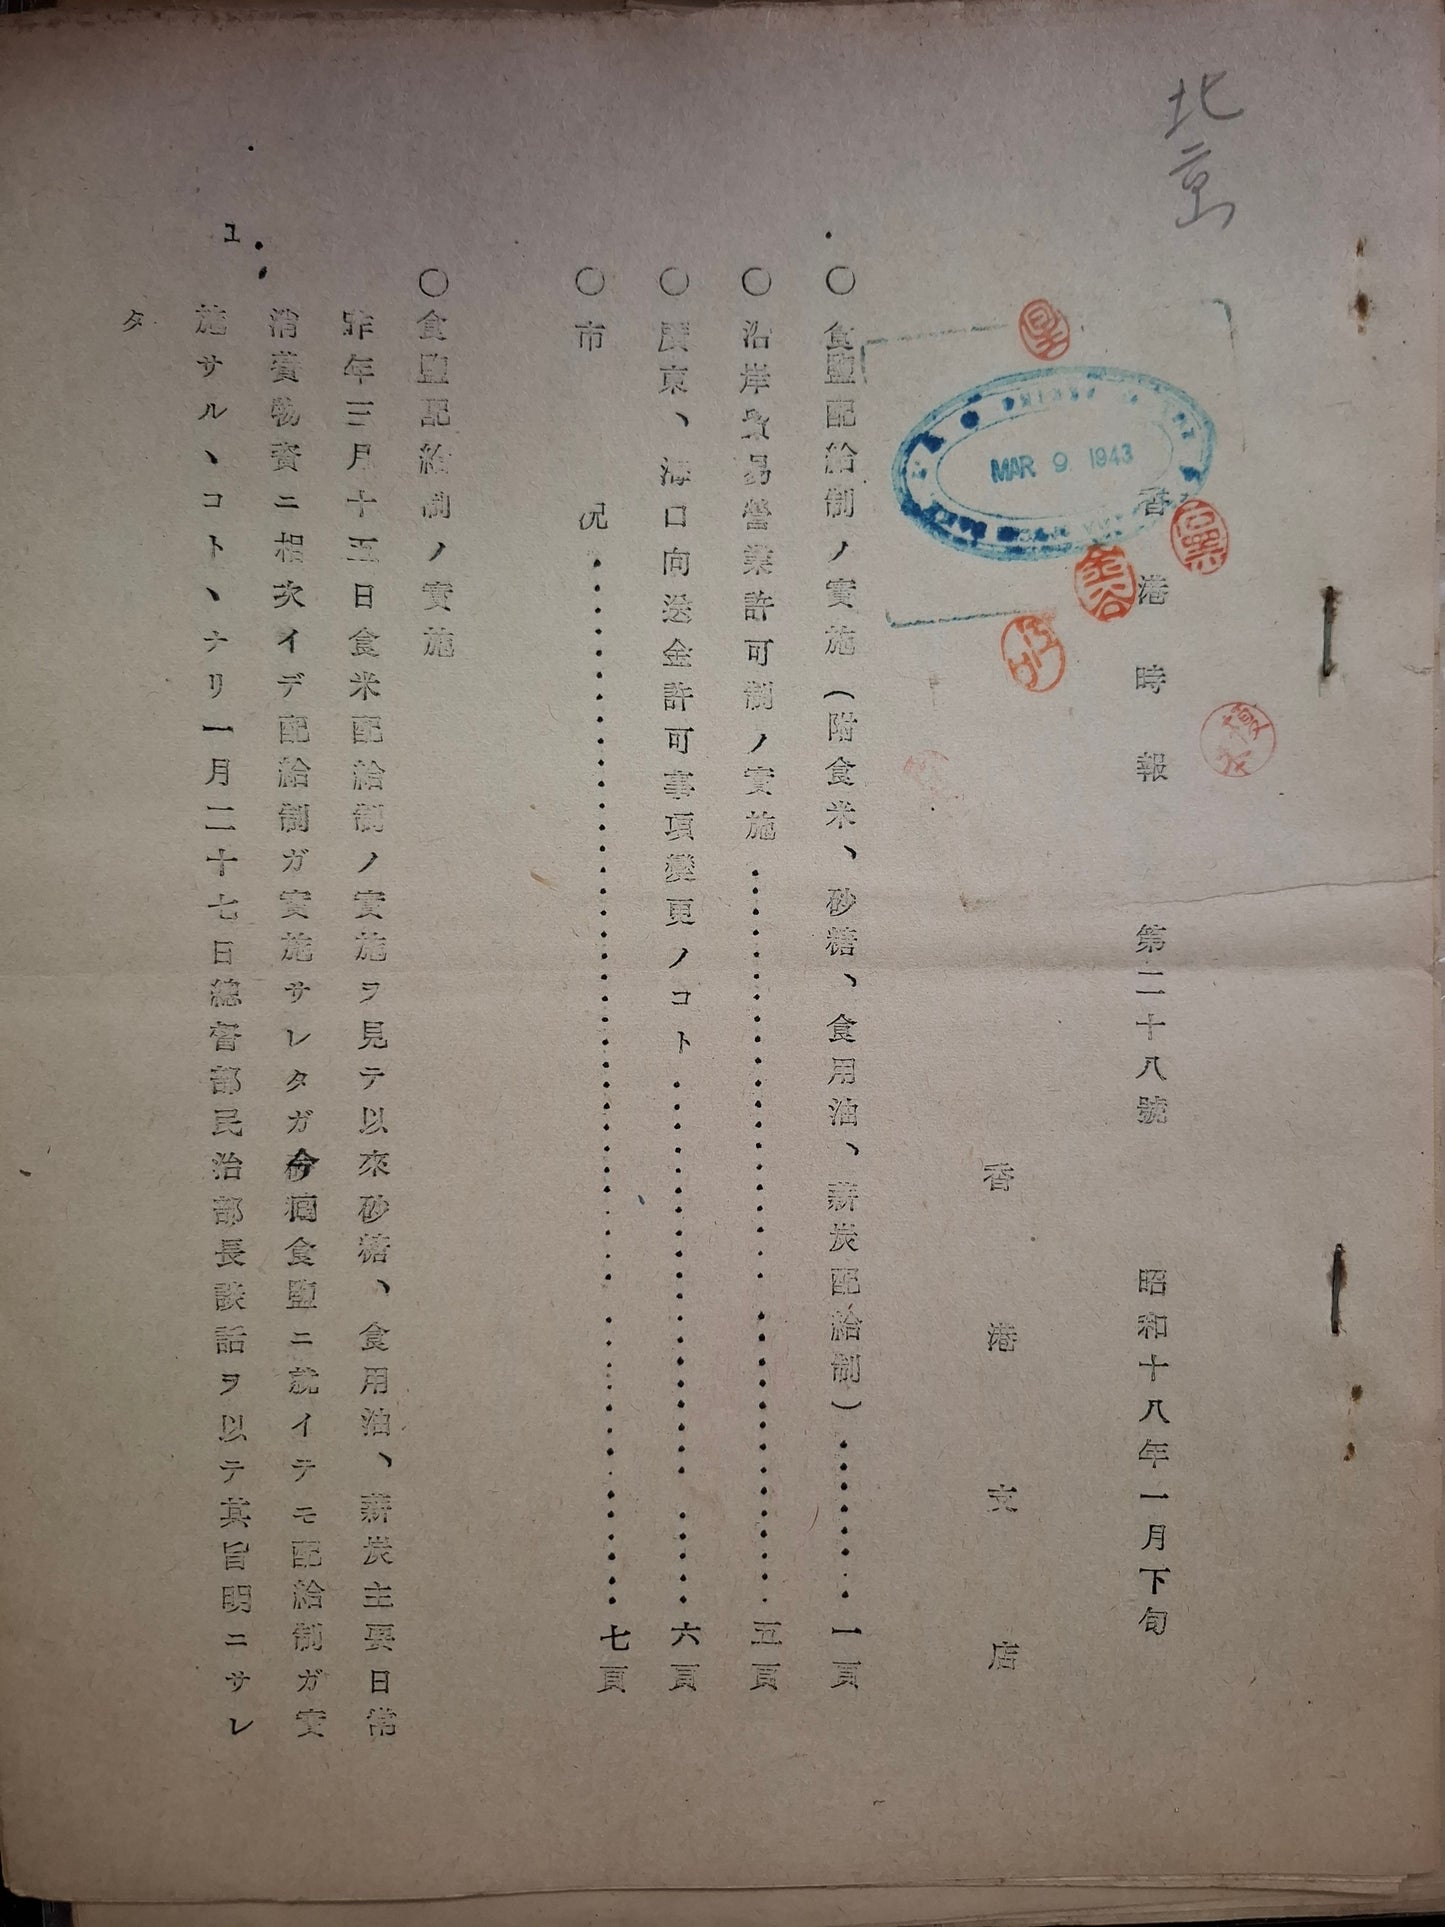 北京
香港時報 第二十八號 昭和十八年一月下旬
MAR 9 1943
香港支店
○食鹽配給制ノ實施(附食米、砂糖、食用油、薪炭配給制)‥‥‥‥一頁
○沿岸貿易營業許可制ノ實施‥‥‥‥‥‥‥‥‥‥‥‥‥‥‥‥五頁
○廣東、海口向送金許可事項變更ノコト‥‥‥‥‥‥‥‥‥‥‥‥六頁
○市況‥‥‥‥‥‥‥‥‥‥‥‥‥‥‥‥‥‥‥‥‥‥‥‥七頁
○食鹽配給制ノ實施
昨年三月十五日食米配給制ノ實施ヲ見テ以來砂糖、食用油、薪炭主要日常
消費物資ニ相次イデ配給制ガ實施サレタガ今囘食鹽ニ就イテモ配給制ガ實
施サルヽコトヽナリ一月二十七日總督部民治部長談話ヲ以テ其旨明ニサレ
タ
1